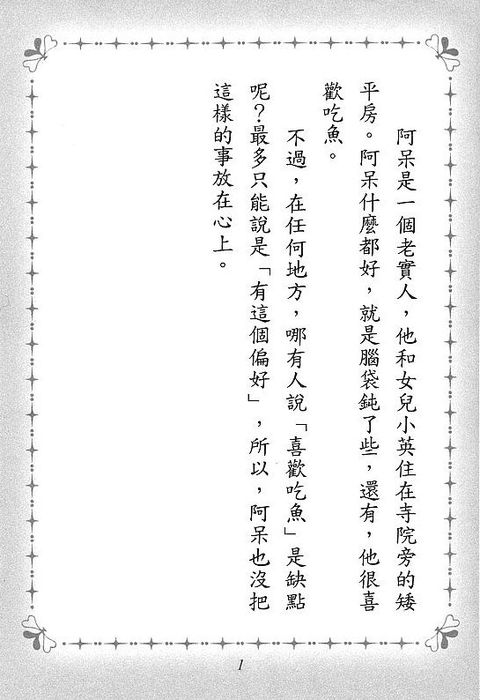 阿呆是一個老實人，他和女兒小英住在寺院旁的矮
平房。阿呆什麼都好，就是腦袋鈍了些，還有，他很喜
歡吃魚。
不過，在任何地方，哪有人說「喜歡吃魚」是缺點
呢？最多只能說是「有這個偏好」，所以，阿呆也沒把
這樣的事放在心上。
1